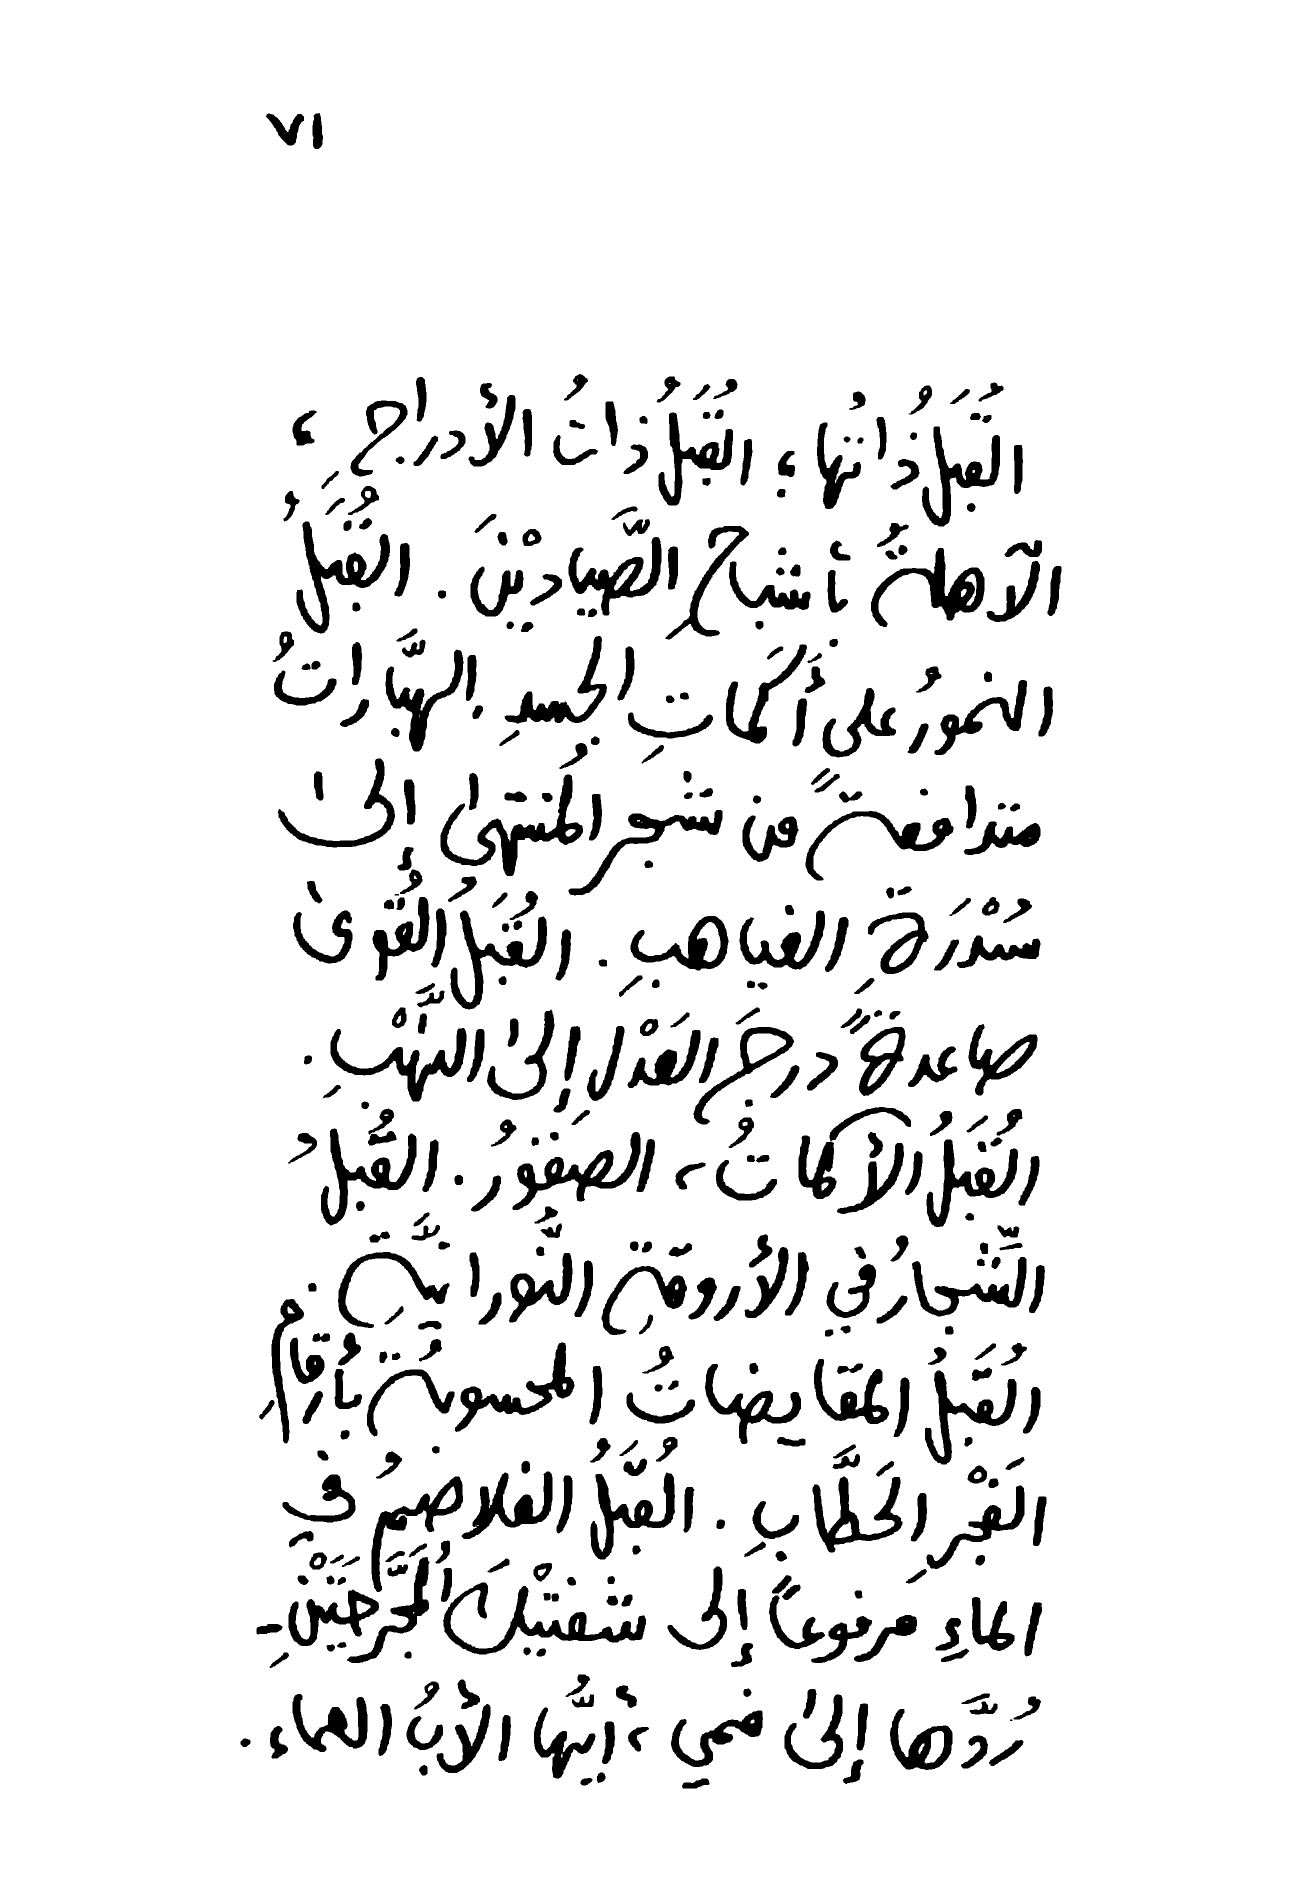 ٧١
القُبَلُ ذاتُها؛ القُبَلُ ذاتُ الأدراجِ؛
الآهلةُ بأشباحِ الصَّيادِيْنَ. القُبَلُ
النمورُ على أَكَماتِ الجسدِ. الهبَّاراتُ
متدافعةً من شجر المُنتهىٰ إلىٰ
سُدْرَةِ الغياهبِ. القُبَلُ القُوىٰ
صاعدةً درجَ العَدْلِ إلىٰ النَّهْبِ.
القُبَلُ الأكماتُ، الصقورُ. القُبَلُ
الشِّجارُ في الأروقةِ النُّورانيَّةِ.
القُبَلُ المقايضاتُ المحسوبةُ بأرقامِ
الفَجْرِ الحَطَّابِ. القُبَلُ الغلاصمُ في
الماءِ مرفوعاً إلى شفتيْكَ المُجَرَّحَتَيْنِ ـ
رُدَّها إلىٰ فمي، أيُّها الأبُ العماء.